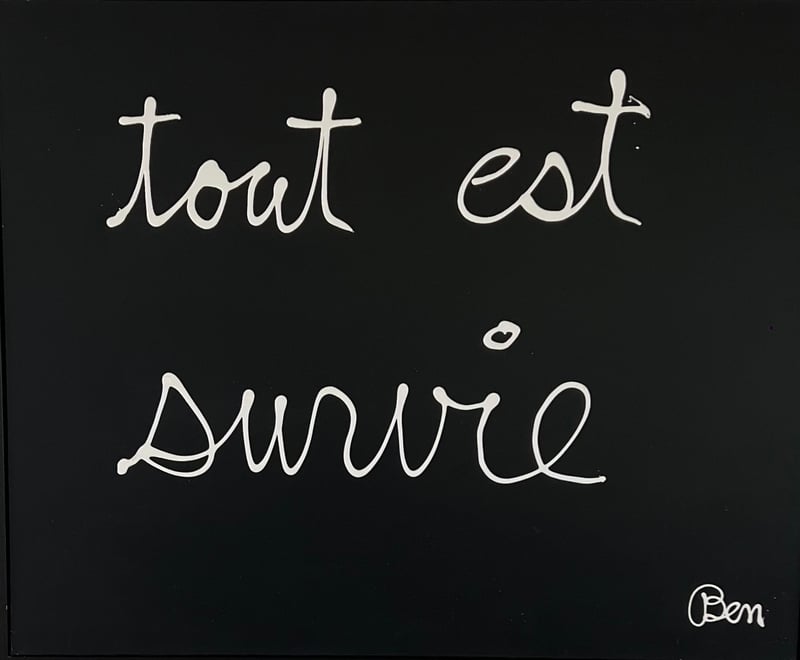 tout est
survie
Ben